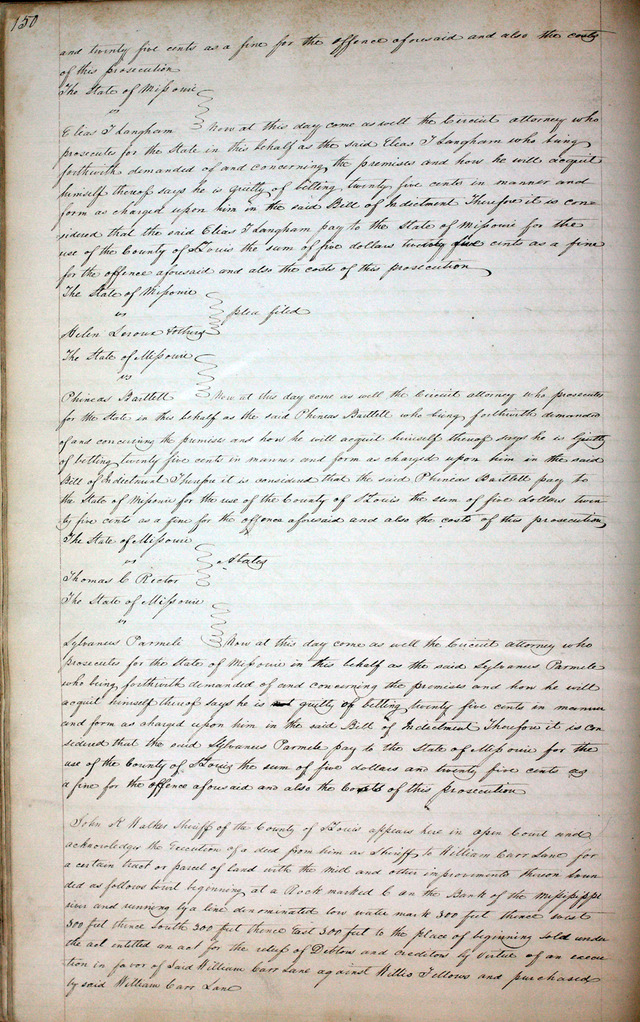 150
and twenty five cents as a fine for the offence aforesaid and also the costs
of this prosecution
The State of Missouri
vs
Elias T Langham Now at this day come as well the Circuit attorney who
prosecutes for the State in this behalf as the said Elias T Langham who being
forthwith demanded of and concerning the premises and how he will acquit
himself thereof says he is guilty of betting twenty five cents in manner and
form as charged upon him in the said Bill of Indictment Therefore it is con-
sidered that the said Elias T Langham pay to the State of Missouri for the
use of the County of St Louis the sum of five dollars twenty five cents as a fine
for the offence aforesaid and also the costs of this prosecution
The State of Missouri
vs plea filed
Helen Leroux & others
The State of Missouri
vs
Phineas Bartlett Now at this day come as well the Circuit attorney who prosecutes
for the State in this behalf as the said Phineas Bartlett who being forthwith demanded
of and concerning the premises and how he will acquit himself thereof says he is Guilty
of betting twenty five cents in manner and form as charged upon him in the said
Bill of Indictment Therefore it is considered that the said Phineas Bartlett pay to
the State of Missouri for the use of the County of St Louis the sum of five dollars twen
ty five cents as a fine for the offence aforesaid and also the costs of this prosecution
The State of Missouri
vs
Thomas C Rector
The State of Missouri
vs
Sylvanus Parmele Now at this day come as well the Circuit attorney who
prosecutes for the State of Missouri in this behalf as the said Sylvanus Parmele
who being forthwith demanded of and concerning the premises and how he will
acquit himself thereof says he is not guilty of betting twenty five cents in manner
and form as charged upon him in the said Bill of Indictment Therefore it is con
sidered that the said Sylvanus Parmele pay to the State of Missouri for the
use of the County of St Louis the sum of five dollars and twenty five cents as
a fine for the offence aforesaid and also the Costs of this prosecution
John K Walker Sheriff of the County of St Louis appears here in open Court and
acknowledges the Execution of a deed from him as Sheriff to William Carr Lane for
a certain tract or parcel of Land with the Mill and other improvements thereon boun
ded as follows beginning at a Rock marked C on the Bank of the Mississippi
river and running by a line denominated low water mark 300 feet thence west
300 feet thence South 300 feet thence East 300 feet to the place of beginning sold under
the act entitled an act for the relief of Debtors and creditors by Virtue of an execu
tion in favor of Said William Carr Lane against Willis Fellows and purchased
by said William Carr Lane